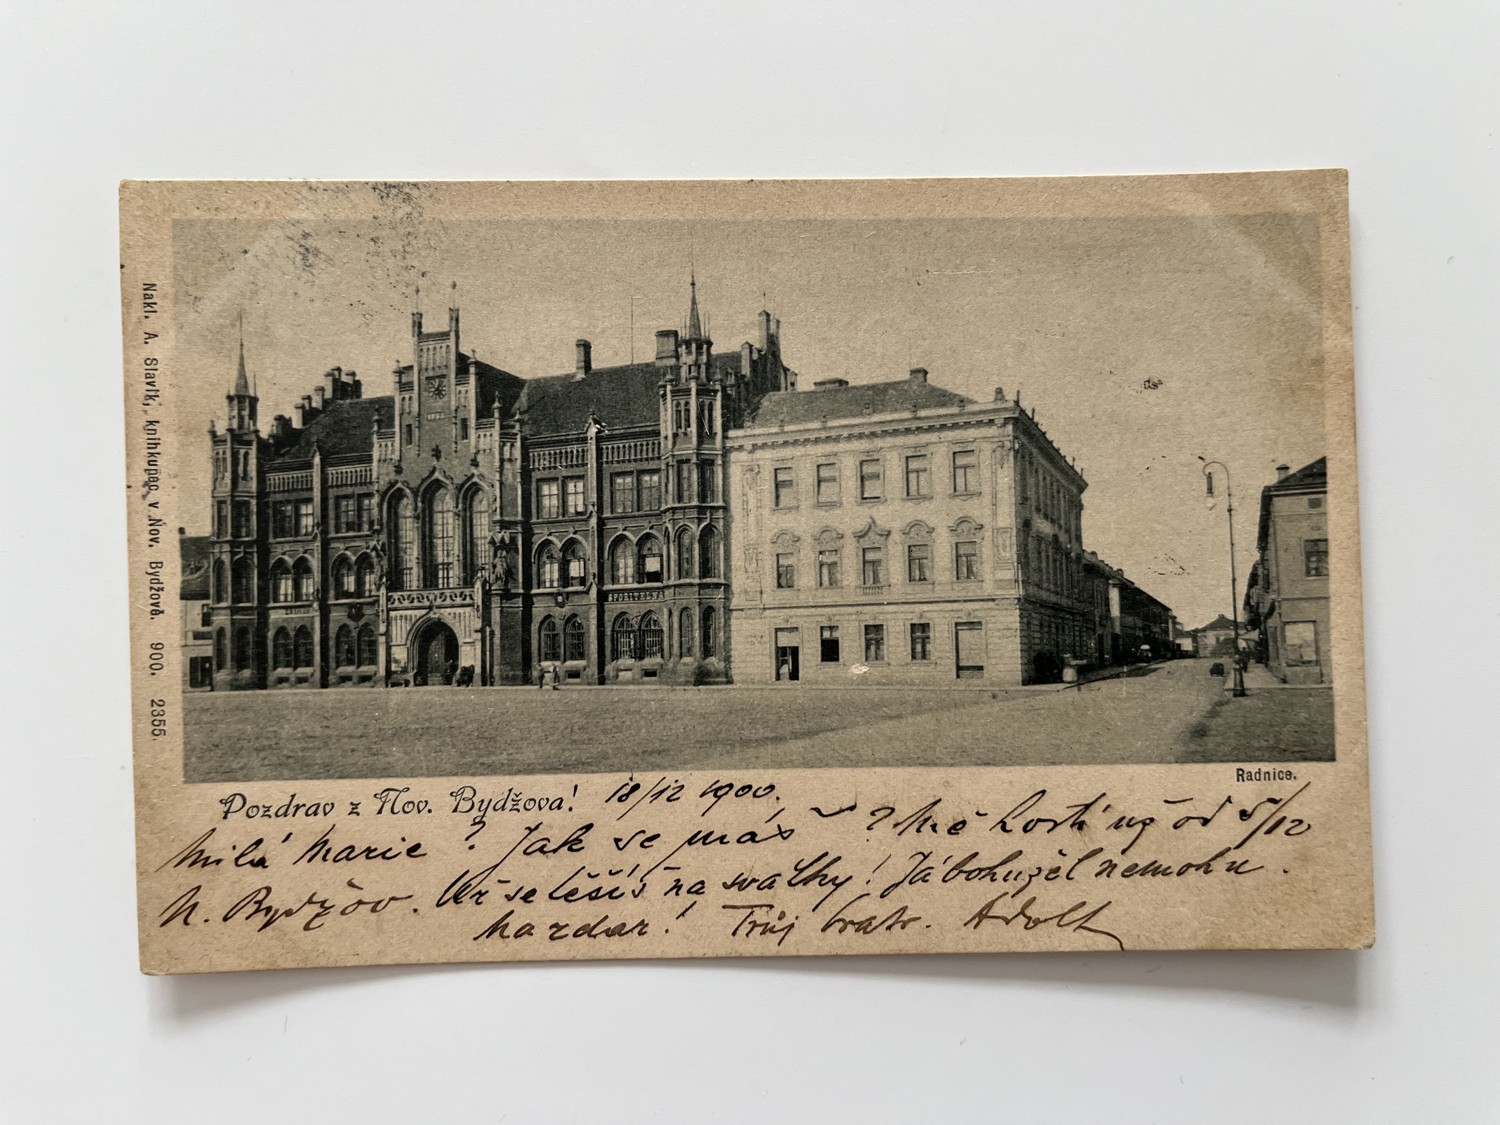 Nakl. A. Slavík, knihkupec v Nov. Bydžově. 900. 2355.
SPOŘITELNA
Radnice.
Pozdrav z Nov. Bydžova! 18/12 1900.
Milá Marie! Jak se máš? Mě hostí už od 5/12
N. Bydžov. Už se těšíš na svátky! Já bohužel nemohu.
Nazdar! Tvůj bratr. Adolf